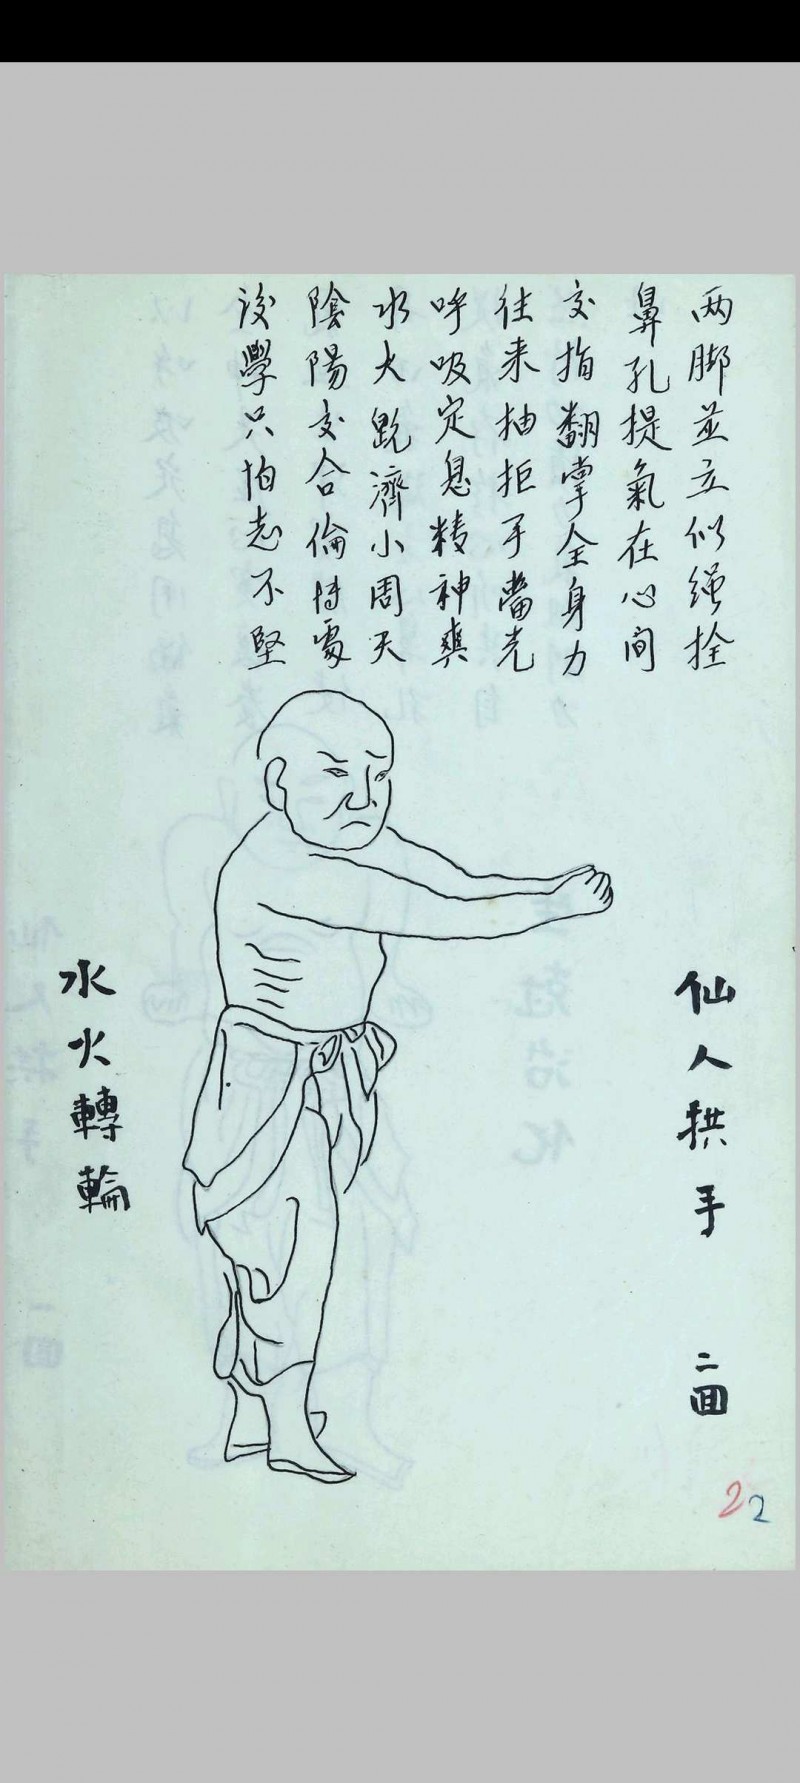 两脚並立似绳拴
鼻孔提氣在心间
交指翻掌全身力
往来抽拒手當先
呼吸定息精神爽
水火既濟小周天
陰陽交合倫轉處
後學只怕志不堅
仙人拱手 二回
水火轉輪
22